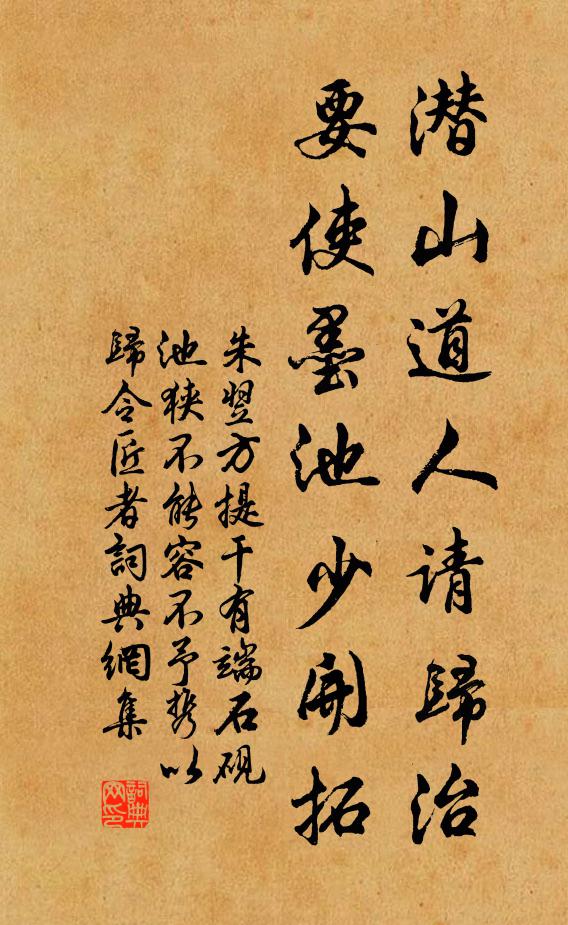 潜山道人请歸治
要使墨池少開拓
朱翌方提干有端石硯
池狹不能容不予携以
歸令匠者詞典網集
詞典网印